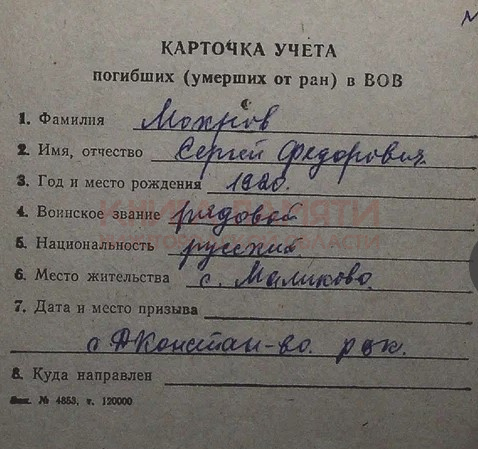 КАРТОЧКА УЧЕТА
погибших (умерших от ран) в ВОВ
1. Фамилия Мохров
2. Имя, отчество Сергей Федорович.
3. Год и место рождения 1920.
4. Воинское звание рядовой
5. Национальность русский.
6. Место жительства с. Маликово.
7. Дата и место призыва
с Д Констан-во. рвк.
8. Куда направлен
Зак. № 4853, т. 120000
КНИГА ПАМЯТИ
ОБЛАСТИ